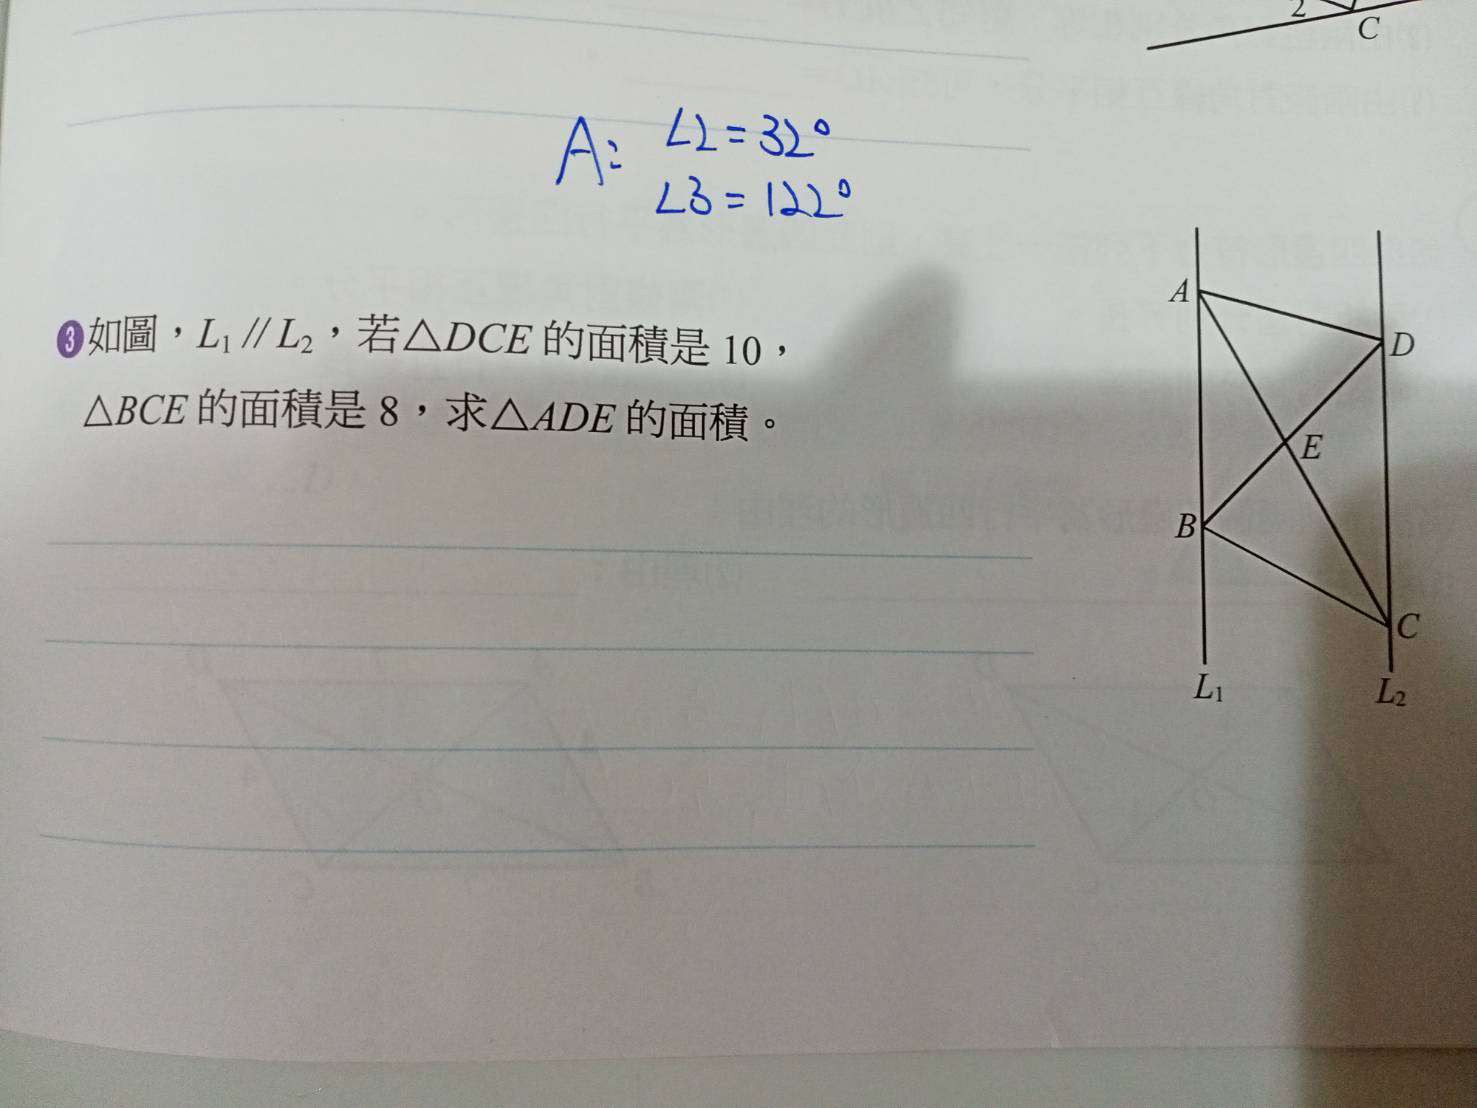 2
C
A: ∠2=32°
∠3=122°
❸如圖，L₁∥L₂，若△DCE的面積是10，
△BCE的面積是8，求△ADE的面積。
A
D
E
B
C
L₁
L₂